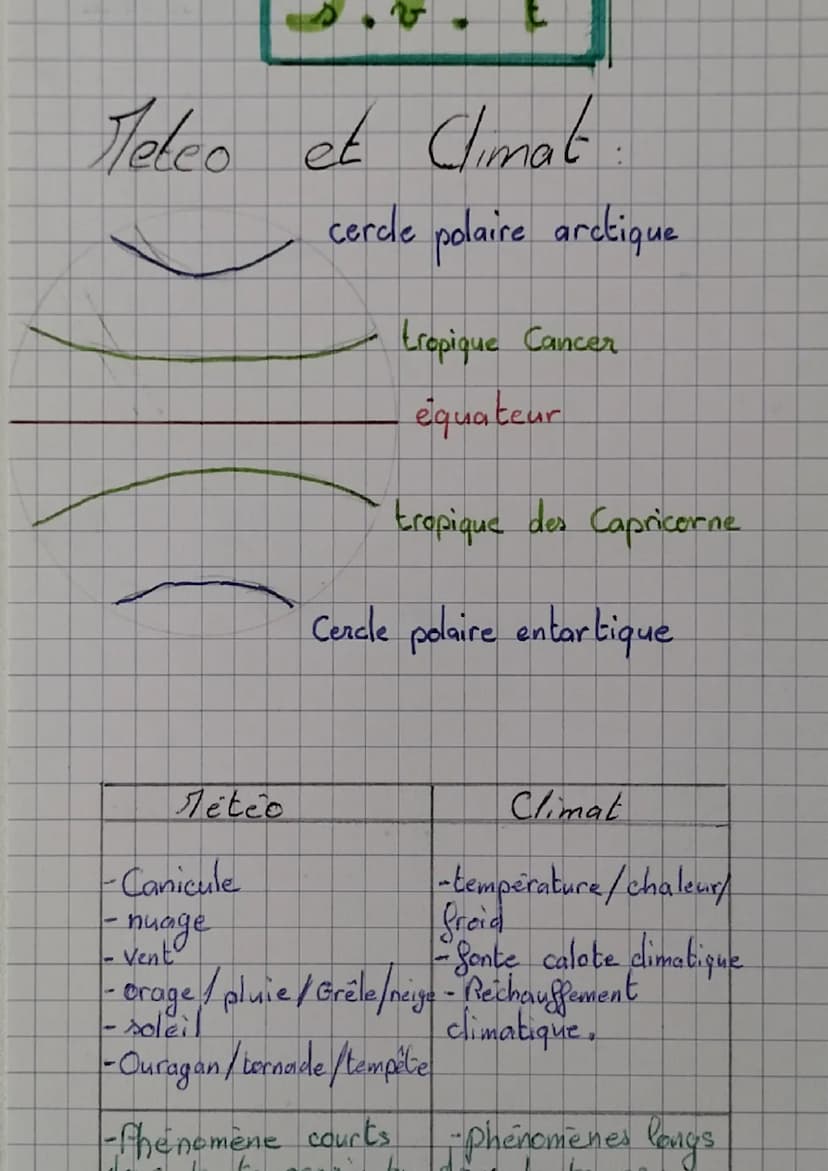 S.V.T
Météo et Climat :
cercle polaire arctique
tropique Cancer
équateur
tropique des Capricorne
Cercle polaire entartique
Météo
Climat
-Canicule
- nuage
- vent
- orage / pluie / Grêle/neige
- soleil
-Ouragan/tornade/tempête
-température/chaleur/
froid
- fonte calote climatique
- Réchauffement
climatique.
-Phénomène courts
-phénomènes longs